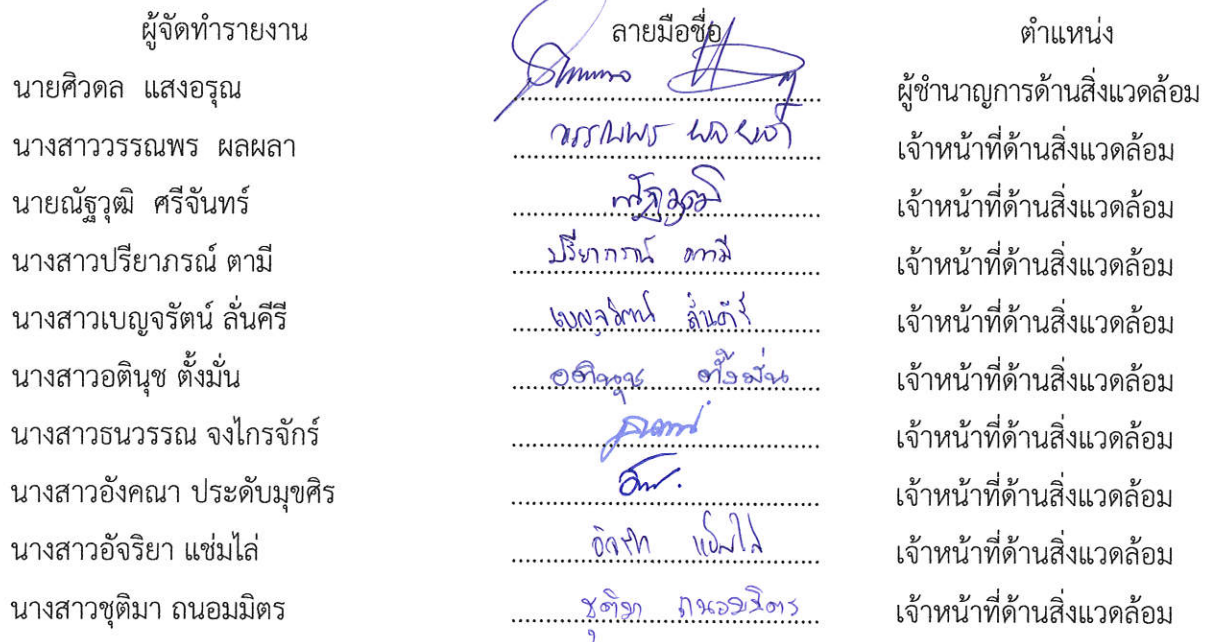 ผู้จัดทำรายงาน ลายมือชื่อ ตำแหน่ง
นายศิวดล แสงอรุณ ผู้ชำนาญการด้านสิ่งแวดล้อม
นางสาววรรณพร ผลผลา วรรณพร ผลผลา เจ้าหน้าที่ด้านสิ่งแวดล้อม
นายณัฐวุฒิ ศรีจันทร์ ณัฐวุฒิ เจ้าหน้าที่ด้านสิ่งแวดล้อม
นางสาวปรียาภรณ์ ตามี ปรียาภรณ์ ตามี เจ้าหน้าที่ด้านสิ่งแวดล้อม
นางสาวเบญจรัตน์ ลั่นคีรี เบญจรัตน์ ลั่นคีรี เจ้าหน้าที่ด้านสิ่งแวดล้อม
นางสาวอตินุช ตั้งมั่น อตินุช ตั้งมั่น เจ้าหน้าที่ด้านสิ่งแวดล้อม
นางสาวธนวรรณ จงไกรจักร์ เจ้าหน้าที่ด้านสิ่งแวดล้อม
นางสาวอังคณา ประดับมุขศิร เจ้าหน้าที่ด้านสิ่งแวดล้อม
นางสาวอัจริยา แช่มไล่ แช่มไล่ เจ้าหน้าที่ด้านสิ่งแวดล้อม
นางสาวชุติมา ถนอมมิตร ชุติมา ถนอมมิตร เจ้าหน้าที่ด้านสิ่งแวดล้อม